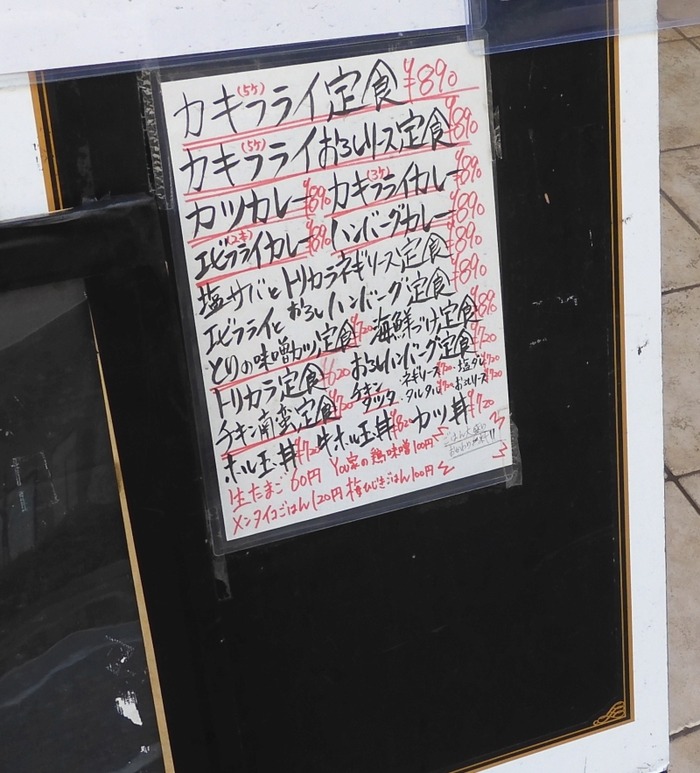 カキフライ(5ケ)定食 ¥890
カキフライ(5ケ)おろしソース定食 ¥890
カツカレー ¥890 カキフライ(3ケ)カレー ¥890
エビフライ(2本)カレー ¥890 ハンバーグカレー ¥890
塩サバとトリカラネギソース定食 ¥890
エビフライとおろしハンバーグ定食 ¥890
とりの味噌カツ定食 ¥720 海鮮づけ定食 ¥890
トリカラ定食 ¥620 おろしハンバーグ定食 ¥720
チキン南蛮定食 ¥720 チキンタツタ ・ネギソース¥720 ・塩ダレ¥720 ・タルタル¥720 おろしソース¥720
ホル玉丼 ¥720 牛ホル玉丼 ¥820 カツ丼 ¥720
生たまご 60円 You家の鶏味噌 100円
メンタイコごはん 120円 梅ひじきごはん 100円
ごはん大盛り
おかわり無料!!